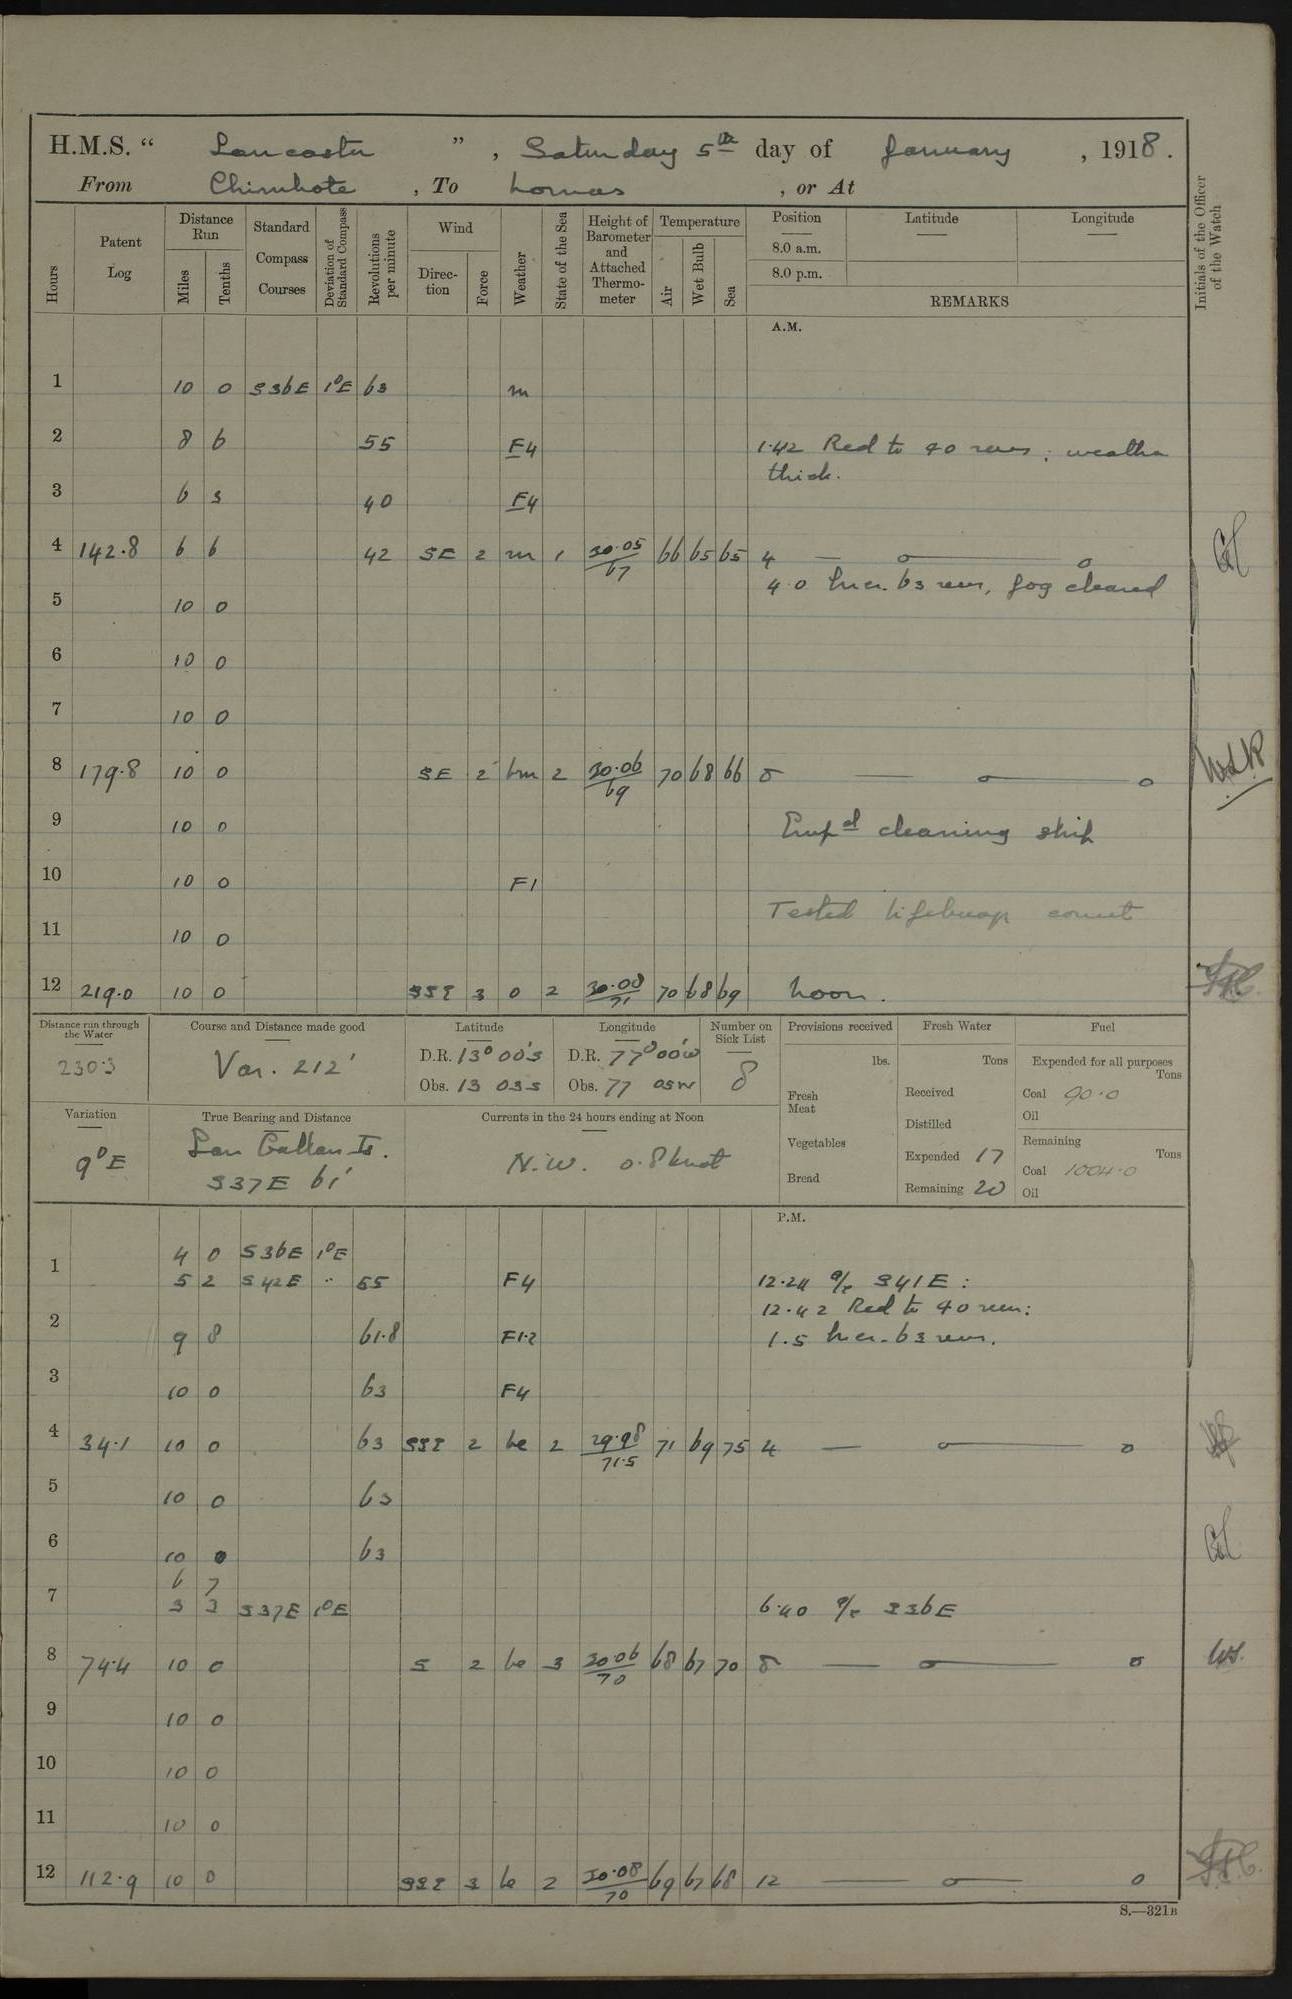 H.M.S. “ Lancaster ” , Saturday 5th day of January , 1918 .
From Chimbote , To Lomas , or At
Hours Patent Log Distance Run Miles Tenths Standard Compass Courses Deviation of Standard Compass Revolutions per minute Wind Direc- tion Force Weather State of the Sea Height of Barometer and Attached Thermo- meter Temperature Air Wet Bulb Sea Position Latitude Longitude Initials of the Officer of the Watch
8.0 a.m.
8.0 p.m.
REMARKS
A.M.
1 10 0 S36E 1°E 63 m
2 8 6 55 F4 1.42 Red to 40 revs ; weather
thick.
3 6 3 40 F4
4 142.8 6 6 42 SE 2 m 1 30.05 67 66 65 65 4
4.0 Incr. 63 revs, fog cleared
5 10 0
6 10 0
7 10 0
8 179.8 10 0 SE 2 bm 2 30.06 69 70 68 66 8
9 10 0 Empd cleaning ship
10 10 0 F1
Tested lifebuoys correct
11 10 0
12 219.0 10 0 SSE 3 0 2 30.08 71 70 68 69 Noon.
Distance run through the Water Course and Distance made good Latitude Longitude Number on Sick List Provisions received Fresh Water Fuel
230.3 Var. 212' D.R. 13° 00'S D.R. 77° 00'W 8 lbs. Tons Expended for all purposes Tons
Obs. 13 03 S Obs. 77 05 W Fresh Meat Received Coal 90.0
Oil
Variation True Bearing and Distance Currents in the 24 hours ending at Noon Distilled Remaining Tons
9°E San Gallan Is. N.W. 0.8 knot Vegetables Expended 17 Coal 1004.0
S37E 61' Bread Remaining 20 Oil
P.M.
4 0 S36E 1°E
1 5 2 S42E " 55 F4 12.24 a/c S41E :
12.42 Red to 40 revs:
2 9 8 61.8 F1.2 1.5 Incr. 63 revs.
3 10 0 63 F4
4 34.1 10 0 63 SSE 2 bc 2 29.98 71.5 71 69 75 4
5 10 0 63
6 10 0 63
6 7
7 3 3 S37E 1°E 6.40 a/c S36E
8 74.4 10 0 S 2 bc 3 30.06 70 68 67 70 8
9 10 0
10 10 0
11 10 0
12 112.9 10 0 SSE 3 bc 2 30.08 70 69 67 68 12
S.—321B